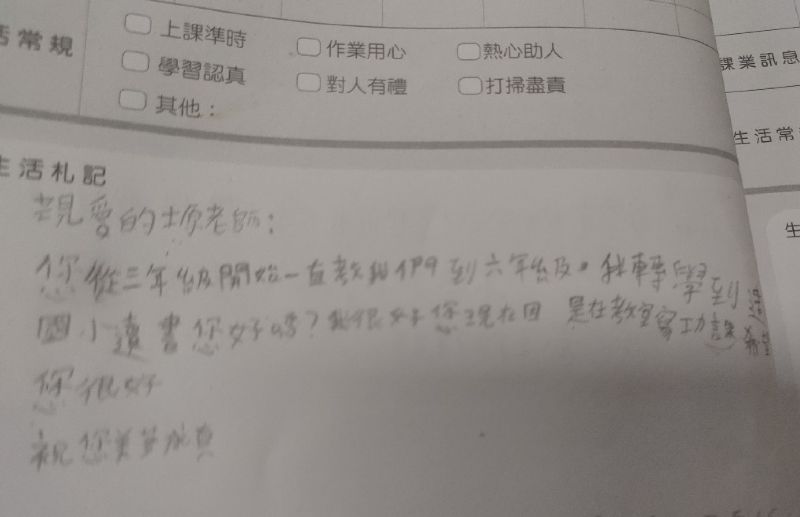 活常規
上課準時 作業用心 熱心助人
學習認真 對人有禮 打掃盡責
其他：
課業訊息
生活常
生活札記
親愛的 老師：
您從三年級開始一直教我們到六年級。我轉學到
國小 書您好嗎？我很好您現在回 是在教室寫功課
您很好
祝您美夢成真
生